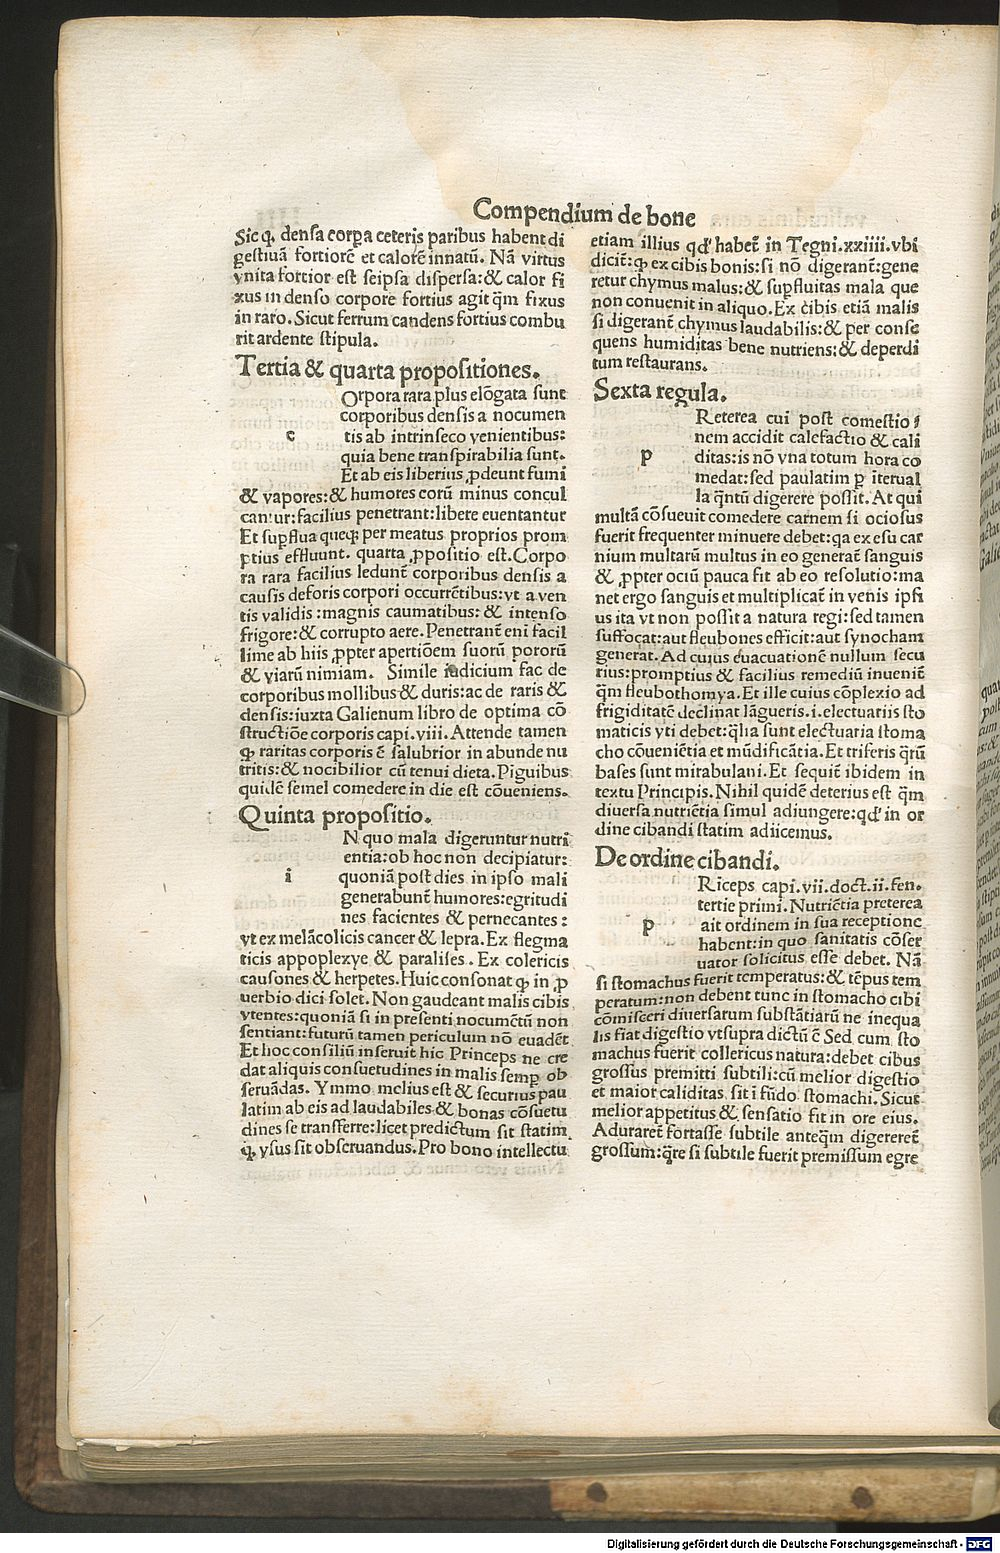 Compendium de bone
Sic ꝙ densa corꝑa ceteris paribus habent di
gestiuã fortiorẽ et calorẽ innatũ. Nã virtus
vnita fortior est seipsa dispersa:& calor fi
xus in denso corpore fortius agit q̃m fixus
in raro. Sicut ferrum candens fortius combu
rit ardente stipula.
Tertia & quarta propositiones.
Orpora rara plus elõgata sunt
corporibus densis a nocumen
c tis ab intrinseco venientibus:
quia bene transpirabilia sunt.
Et ab eis liberius ꝓdeunt fumi
& vapores:& humores eorũ minus concul
cantur: facilius penetrant: libere euentantur
Et suꝑflua queqꝫ per meatus proprios prom
ptius effluunt. quarta ꝓpositio est. Corpo
ra rara facilius ledunt̃ corporibus densis a
causis deforis corpori occurrẽtibus: vt a ven
tis validis: magnis caumatibus: & intenso
frigore: & corrupto aere. Penetrant̃ eni facil
lime ab hiis ꝓpter apertiõem suorũ pororũ
& viarũ nimiam. Simile iudicium fac de
corporibus mollibus & duris: ac de raris &
densis: iuxta Galienum libro de optima cõ
structiõe corporis capi. viii. Attende tamen
ꝙ raritas corporis ẽ salubrior in abunde nu
tritis: & nocibilior cũ tenui dieta. Piguibus
quidẽ semel comedere in die est cõueniens.
Quinta propositio.
N quo mala digeruntur nutri
entia: ob hoc non decipiatur:
i quoniã post dies in ipso mali
generabunt̃ humores: egritudi
nes facientes & pernecantes:
vt ex melãcolicis cancer & lepra. Ex flegma
ticis appoplexye & paralises. Ex colericis
causones & herpetes. Huic consonat ꝙ in ꝓ
uerbio dici solet. Non gaudeant malis cibis
vtentes: quoniã si in presenti nocumẽtũ non
sentiant: futurũ tamen periculum nõ euadẽt
Et hoc consiliũ inseruit hic Princeps ne cre
dat aliquis consuetudines in malis semꝑ ob
seruãdas. Ymmo melius est & securius pau
latim ab eis ad laudabiles & bonas cõsuetu
dines se transferre: licet predictum sit statim
ꝙ vsus sit obseruandus. Pro bono intellectu
etiam illius qd' habet̃ in Tegni. xxiiii. vbi
dicit̃: ꝙ ex cibis bonis: si nõ digerant̃: gene
retur chymus malus: & suꝑfluitas mala que
non conuenit in aliquo. Ex cibis etiã malis
si digerant̃ chymus laudabilis: & per conse
quens humiditas bene nutriens: & deperdi
tum restaurans.
Sexta regula.
Reterea cui post comestio
nem accidit calefactio & cali
p ditas: is nõ vna totum hora co
medat: sed paulatim ꝑ iterual
la q̃ntũ digerere possit. At qui
multã cõsueuit comedere carnem si ociosus
fuerit frequenter minuere debet: qa ex esu car
nium multarũ multus in eo generat̃ sanguis
& ꝓpter ociũ pauca fit ab eo resolutio: ma
net ergo sanguis et multiplicat̃ in venis ipsi
us ita vt non possit a natura regi: sed tamen
suffocat: aut fleubones efficit: aut synocham
generat. Ad cuius euacuationẽ nullum secu
rius: promptius & facilius remediũ inuenit̃
q̃m fleubothomya. Et ille cuius cõplexio ad
frigiditatẽ declinat lãgueris. i. electuariis sto
maticis vti debet: q̃lia sunt electuaria stoma
cho cõueniẽtia et mũdificãtia. Et triferis q̃rũ
bases sunt mirabulani. Et sequit̃ ibidem in
textu Principis. Nihil quidẽ deterius est q̃m
diuersa nutriẽtia simul adiungere: qd' in or
dine cibandi statim adiicemus.
De ordine cibandi.
Riceps capi. vii. doct. ii. fen.
tertie primi. Nutriẽtia preterea
p ait ordinem in sua receptione
habent: in quo sanitatis cõser
uator solicitus esse debet. Nã
si stomachus fuerit temperatus: & tẽpus tem
peratum: non debent tunc in stomacho cibi
cõmisceri diuersarum substãtiarũ ne inequa
lis fiat digestio vtsupra dictũ ẽ Sed cum sto
machus fuerit collericus natura: debet cibus
grossus premitti subtili: cũ melior digestio
et maior caliditas sit i fũdo stomachi. Sicut
melior appetitus & sensatio fit in ore eius.
Aduraret̃ fortasse subtile anteq̃m digereret̃
grossum: q̃re si subtile fuerit premissum egre
Digitalisierung gefördert durch die Deutsche Forschungsgemeinschaft - DFG